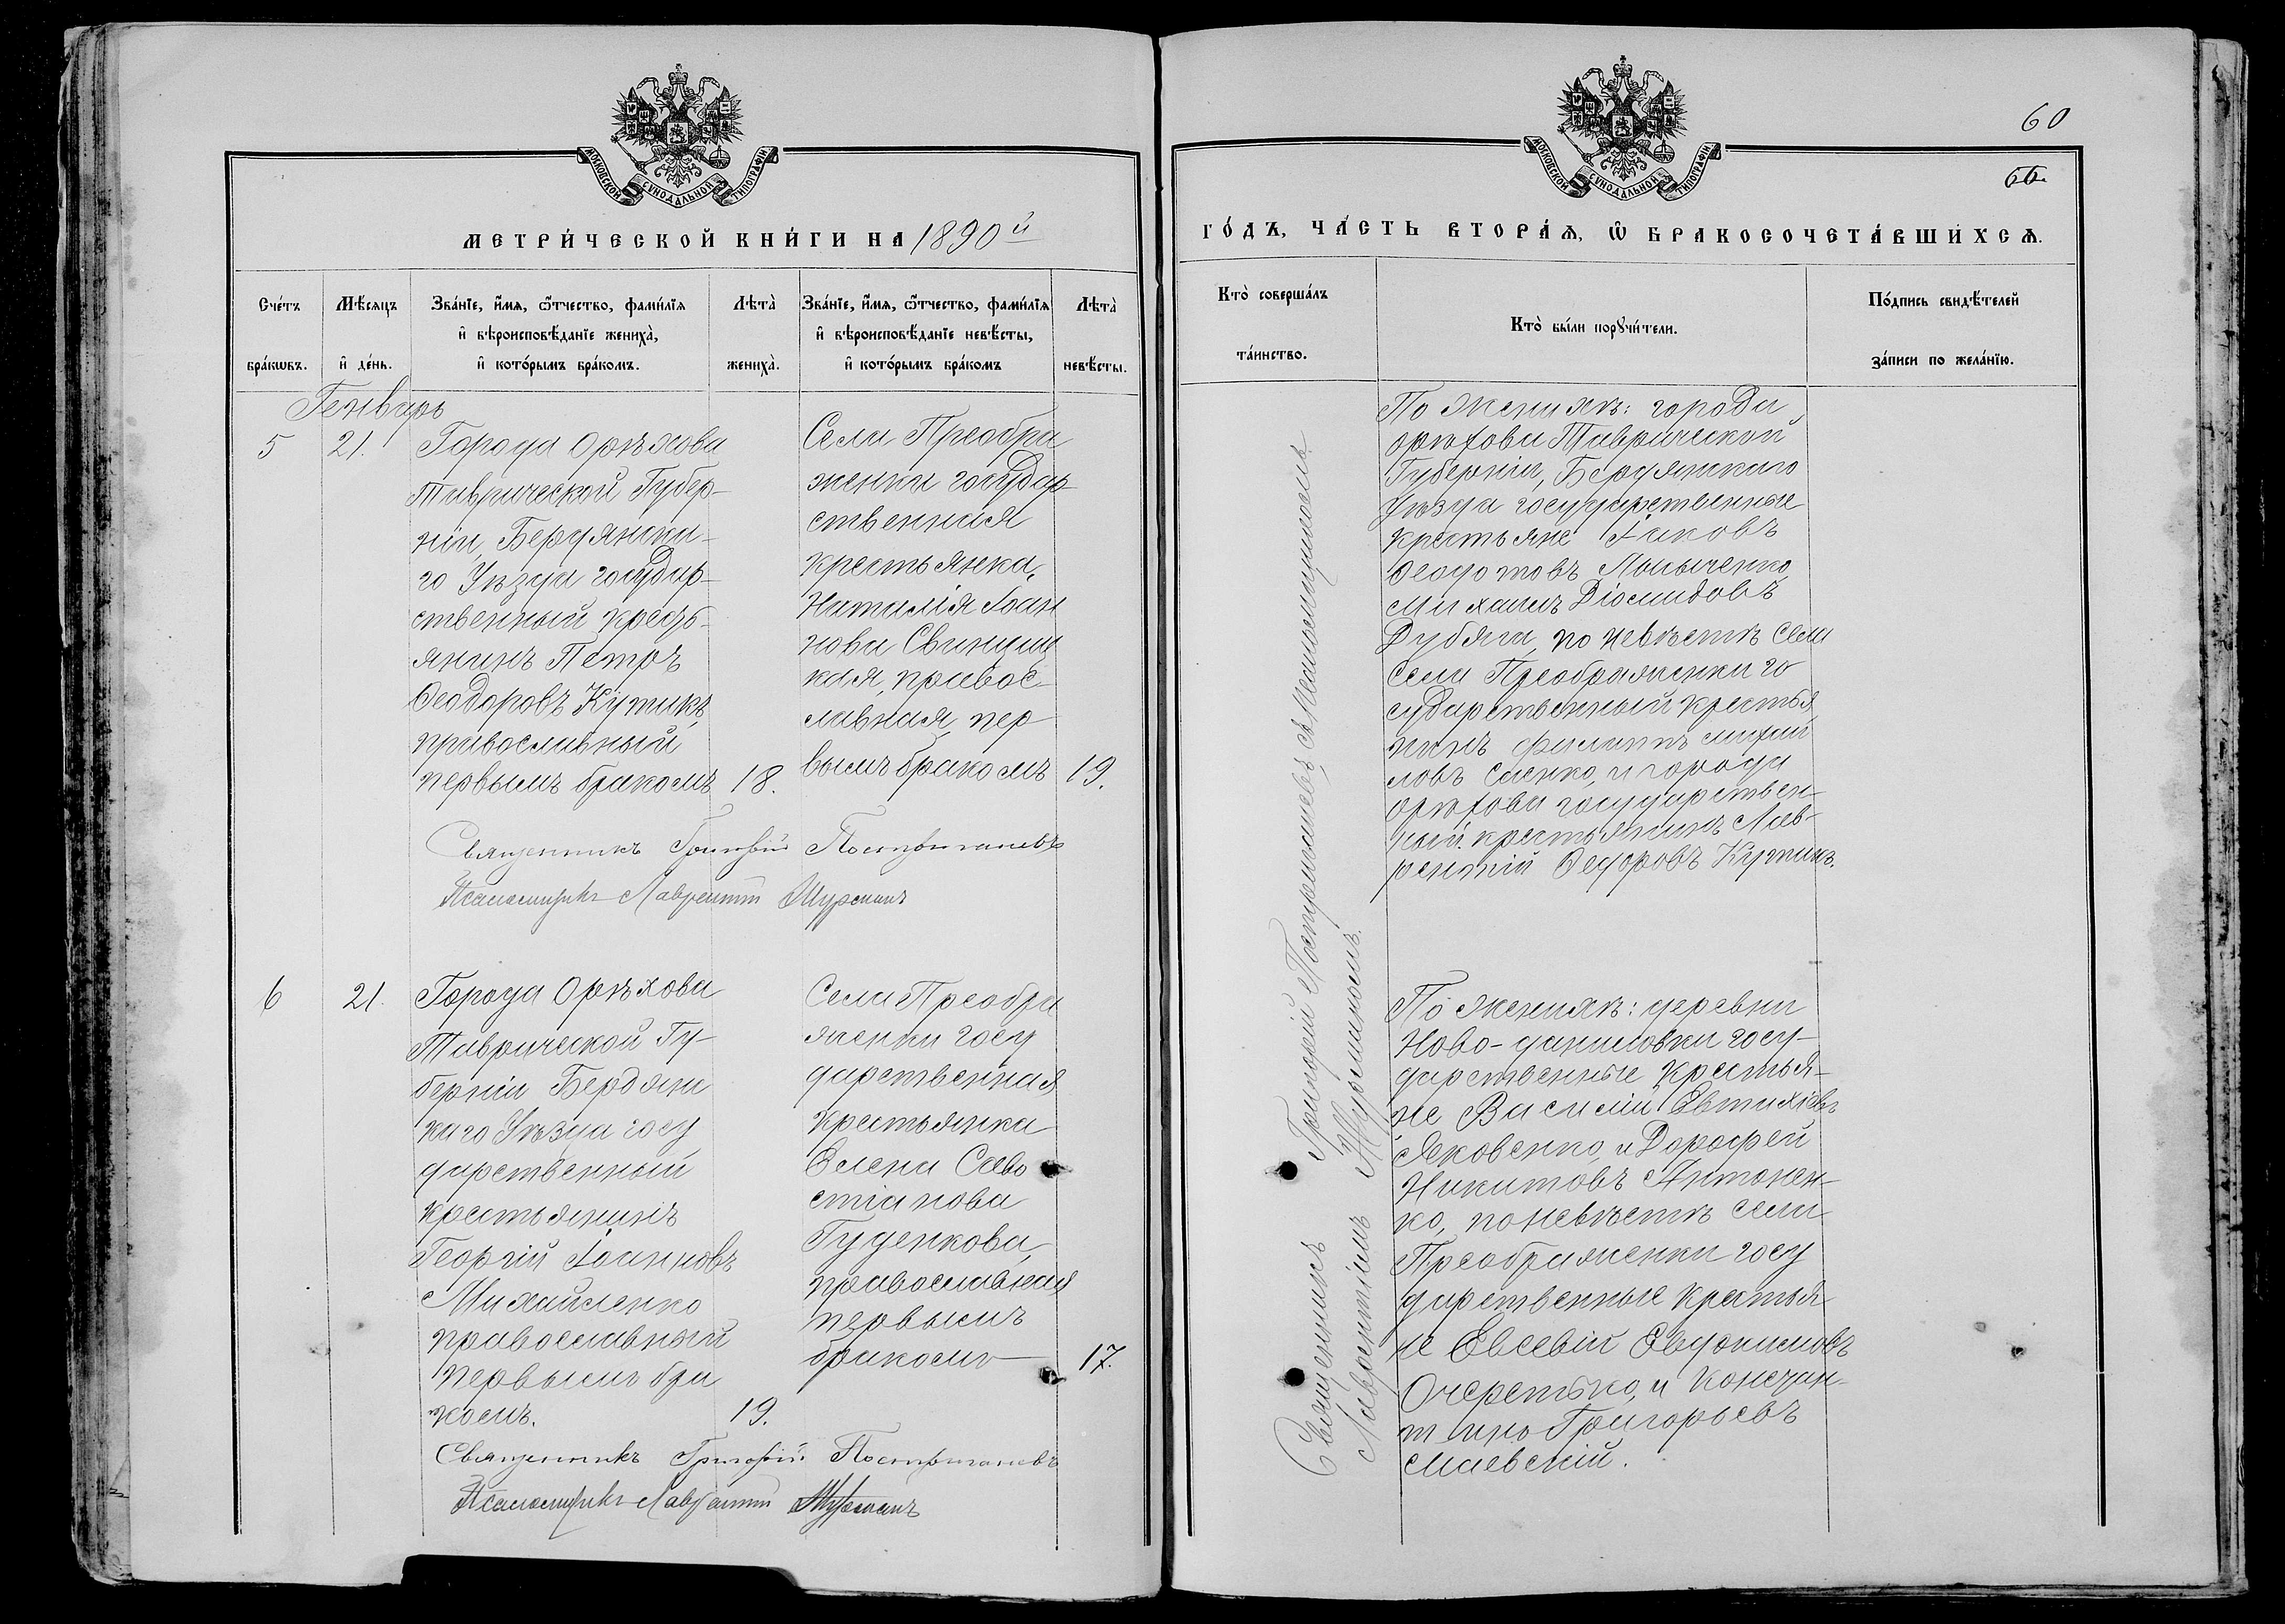 МОСКОВСКОЙ СѴНОДАЛЬНОЙ ТИПОГРАФІИ
МЕТРИ́ЧЕСКОЙ КНИ́ГИ НА 1890й
Сче́тъ бра́кѡвъ.
Мѣ́сяцъ и҆ де́нь.
Зва́нїе, и҆́мѧ, ѻ҆́тчество, фами́лїѧ
и҆ вѣроисповѣ́данїе жениха̀,
и҆ кото́рымъ бра́комъ.
Лѣта̀ жениха̀.
Зва́нїе, и҆́мѧ, ѻ҆́тчество, фами́лїѧ
и҆ вѣроисповѣ́данїе невѣ́сты,
и҆ кото́рымъ бра́комъ
Лѣта̀ невѣ́сты.
Генварь
5
21.
Города Орѣхова
Таврической Губер-
ніи, Бердянска-
го Уѣзда государ-
ственный кресть-
янинъ Петръ
Ѳеодоровъ Кутикъ,
православный
первымъ бракомъ
18.
Села Преобра
женки государ-
ственная
крестьянка,
Наталія Іоан
нова Свинциц
кая, правос-
лавная, пер
вымъ бракомъ
19.
Священникъ Григорій Пострыганевъ
Псаломщикъ Лаврентій Журманъ
6
21.
Города Орѣхова
Таврической Гу-
берніи Бердянс
каго Уѣзда госу
дарственный
крестьянинъ
Георгій Іоанновъ
Михайленко
православный
первымъ бра
комъ.
19.
Села Преобра
женки госу
дарственная
крестьянка
Елена Саво
стіанова
Гуденкова,
православная
первымъ
бракомъ
17.
Священникъ Григорій Пострыганевъ
Псаломщикъ Лаврентій Журманъ
60
66.
МОСКОВСКОЙ СѴНОДАЛЬНОЙ ТИПОГРАФІИ
ГО́ДЪ, ЧА́СТЬ ВТОРА́Ѧ, Ѽ БРАКОСОЧЕТА́ВШИХСѦ.
Кто̀ соверша́лъ
та́инство.
Кто̀ бы́ли порꙋчи́тели.
По́дпись свидѣ́телей
за́писи по жела́нїю.
Священникъ Григорій Пострыганевъ съ Псаломщикомъ
Лаврентіемъ Журманомъ.
По женихѣ: города
Орѣхова Таврической
Губерніи, Бердянскаго
Уѣзда государственные
крестьяне Іаковъ
Ѳеодотовъ
Михаилъ Діомидовъ
Дубяга, по невѣстѣ села
села Преображенки го
сударственный крестья
нинъ Филиппъ
Саенко, и города
Орѣхова государствен-
ный крестьянинъ Лав-
рентій Ѳедоровъ Кутикъ.
По женихѣ: деревни
Ново-даниловки госу-
дарственные крестья-
не Василій Евтихіевъ
Яковенко, и Дорофей
Никитовъ Антонен-
ко, по невѣстѣ села
Преображенки госу
дарственные крестья
не Евсевій Евдокимовъ
Очеретько, и Констан-
тинъ Григорьевъ
Маевскій.